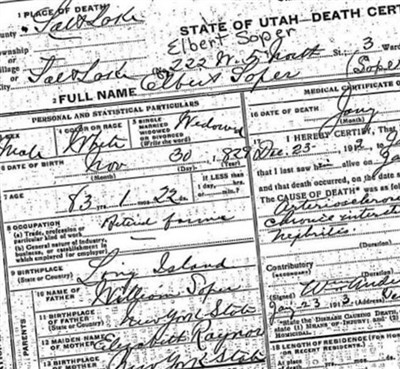 1 PLACE OF DEATH
STATE OF UTAH—DEATH CERT
County
Salt Lake
Elbert Soper
Township
or
Village
222 W. 5 North St.; 3 Ward
or
City
Salt Lake No.
Elbert Soper (Soper
2 FULL NAME
PERSONAL AND STATISTICAL PARTICULARS
MEDICAL CERTIFICATE OF
SEX
4 COLOR OR RACE
5 SINGLE
MARRIED
WIDOWED
OR DIVORCED
(Write the word)
Widowed
Male White
16 DATE OF DEATH
Jany
(Month)
6 DATE OF BIRTH
Nov 30 1829
(Month) (Day)
I HEREBY CERTIFY, That
Dec. 23 1912
that I last saw alive on
7 AGE
83 yrs. 1 22 ds.
IF LESS than
1 day, hrs.
or min.?
and that death occurred, on date
The CAUSE OF DEATH* was as follo
Arteriosclerosis
Chronic interst
nephritis.
8 OCCUPATION
(a) Trade, profession or
particular kind of work
Retired farmer
(b) General nature of industry,
business, or establishment in
which employed (or employer)
(Duration)
Contributory
(Secondary)
(Duration)
9 BIRTHPLACE
(State or Country)
Long Island
10 NAME OF
FATHER
William Soper
(Signed)
Jan 23 1913 (Address)
11 BIRTHPLACE
OF FATHER
(State or Country)
New York State
*State the DISEASE CAUSING DEATH
state (1) MEANS OF INJURY; and (2)
PARENTS
12 MAIDEN NAME
OF MOTHER
Elizabeth Raynor
18 LENGTH OF RESIDENCE (For Ho
or Recent Residents.)
13 BIRTHPLACE
OF MOTHER
New York State